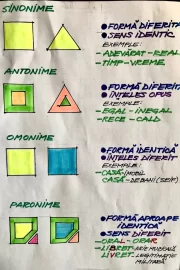 SINONIME
● FORMĂ DIFERITĂ
● SENS IDENTIC
EXEMPLE:
- ADEVĂRAT - REAL
- TIMP - VREME
ANTONIME
● FORMĂ DIFERITĂ
● INTELES OPUS
EXEMPLE:
- EGAL - INEGAL
- RECE - CALD
OMONIME
● FORMĂ IDENTICĂ
● INTELES DIFERIT
EXEMPLE:
CASĂ - IMOBIL
CASĂ - DE BANI (SEIF)
PARONIME
● FORMĂ APROAPE
IDENTICĂ
● SENS DIFERIT
- ORAL - ORAR
- LIBRET - ARIE MUZICALĂ
LIVRET - LEGITIMAȚIE
MILITARĂ